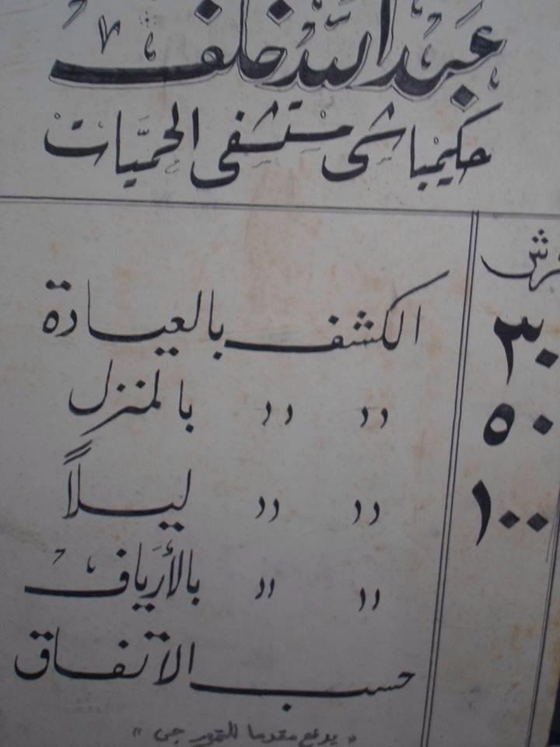 عبد الله خلف
حكيمباشى مستشفى الحميات
قرش
٣٠ الكشف بالعيادة
٥٠ " " بالمنزل
١٠٠ " " ليلاً
" " بالأرياف
حسب الاتفاق
" يدفع مقدما للتمورجى "